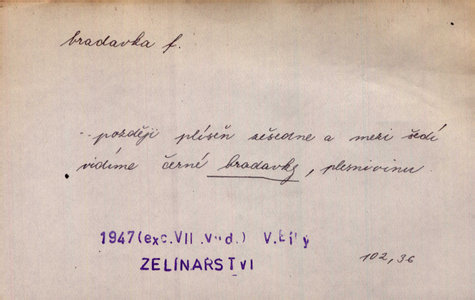 bradavka f.
.. později plíseň zšedne a mezi šedí
vidíme černé bradavky, plesnivinu
1947(exc.VII.vyd.) V.Bílý
ZELINÁŘSTVI
102,36